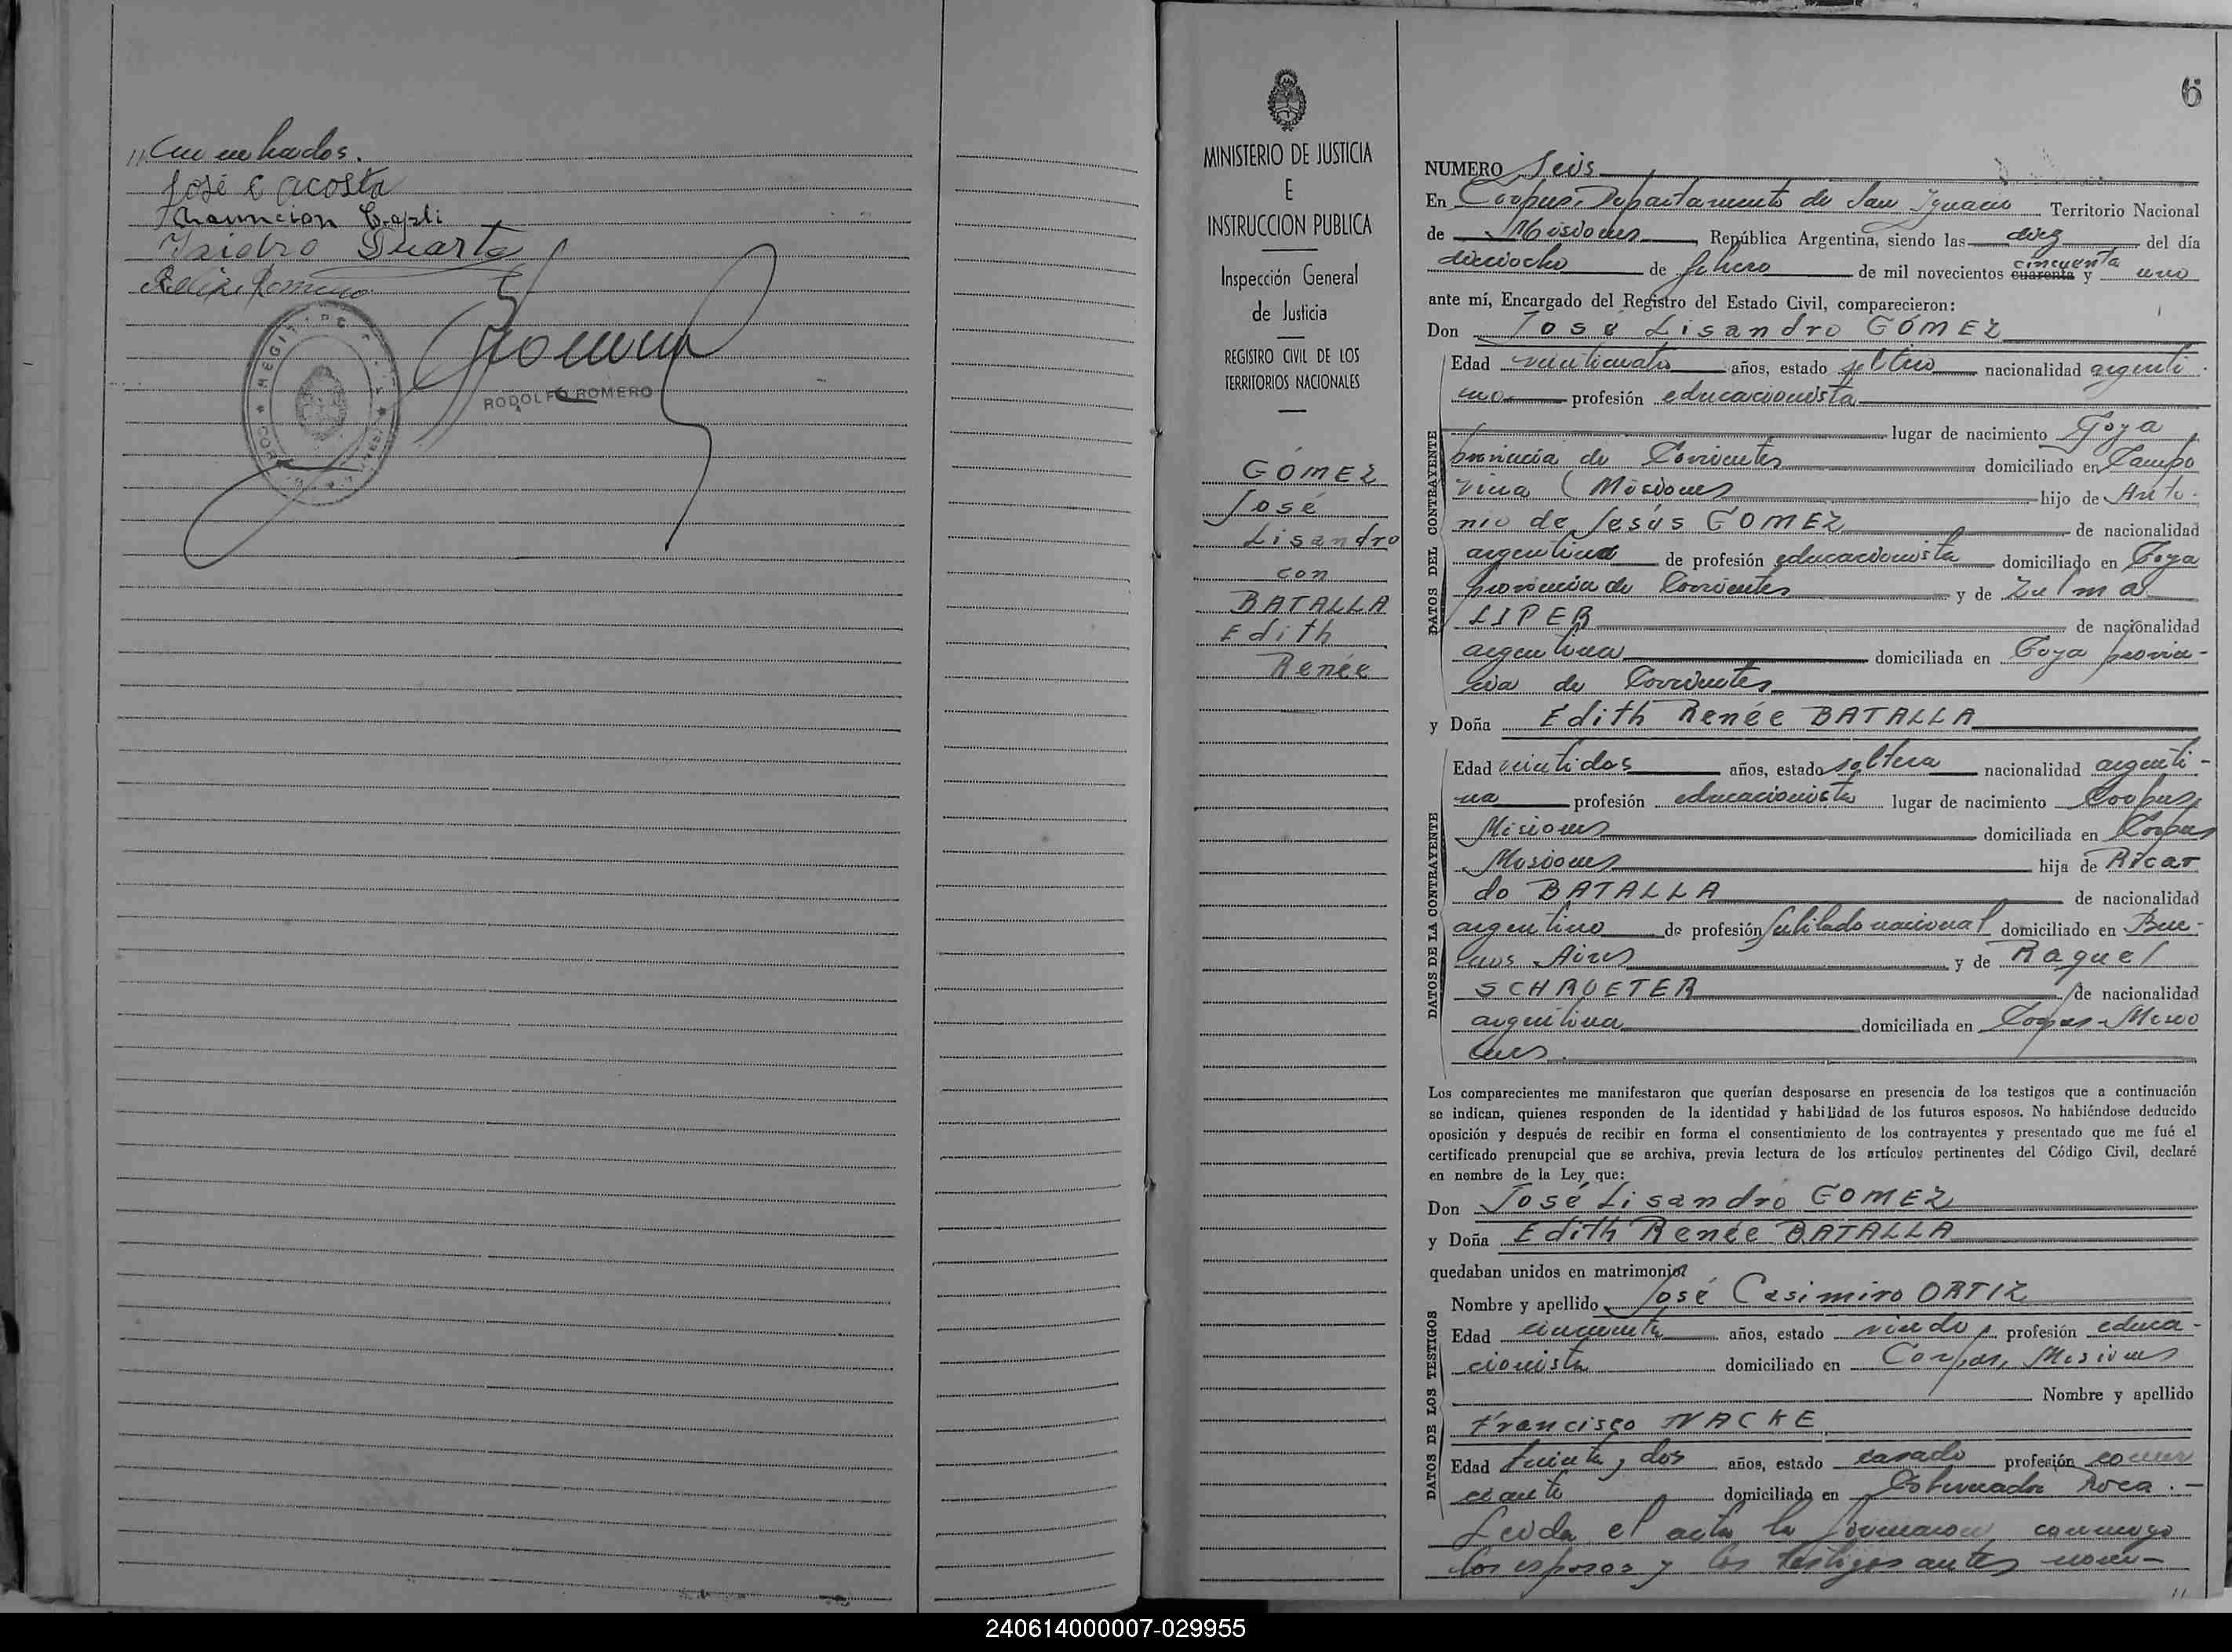 José C Acosta
Isidro Duarte
RODOLFO ROMERO
6
MINISTERIO DE JUSTICIA
E
INSTRUCCION PUBLICA
Inspección General
de Justicia
REGISTRO CIVIL DE LOS
TERRITORIOS NACIONALES
GÓMEZ
José
Lisandro
con
BATALLA
Edith
Renée
NUMERO Seis
En Corpus, Departamento de San Ignacio Territorio Nacional
de Misiones, República Argentina, siendo las diez del día
dieciocho de febrero de mil novecientos cuarenta cincuenta y uno
ante mí, Encargado del Registro del Estado Civil, comparecieron:
Don José Lisandro GÓMEZ
Edad veinticuatro años, estado soltero nacionalidad argenti-
no profesión educacionista
lugar de nacimiento Goya
DATOS DEL CONTRAYENTE
provincia de Corrientes domiciliado en Campo
Viera (Misiones hijo de Anto-
nio de Jesús GOMEZ de nacionalidad
argentina de profesión educacionista domiciliado en Goya
provincia de Corrientes y de Zulma
LIPER de nacionalidad
argentina domiciliada en Goya provin-
cia de Corrientes
y Doña Edith Renée BATALLA
Edad veintidos años, estado soltera nacionalidad argenti-
na profesión educacionista lugar de nacimiento Corpus,
Misiones domiciliada en Corpus
DATOS DE LA CONTRAYENTE
Misiones hija de Ricar
do BATALLA de nacionalidad
argentino de profesión jubilado nacional domiciliado en Bue-
nos Aires y de Raquel
SCHROETER de nacionalidad
argentina domiciliada en Corpus-Misio
nes.
Los comparecientes me manifestaron que querían desposarse en presencia de los testigos que a continuación
se indican, quienes responden de la identidad y habilidad de los futuros esposos. No habiéndose deducido
oposición y después de recibir en forma el consentimiento de los contrayentes y presentado que me fué el
certificado prenupcial que se archiva, previa lectura de los artículos pertinentes del Código Civil, declaré
en nombre de la Ley que:
Don José Lisandro GOMEZ
y Doña Edith Renée BATALLA
quedaban unidos en matrimonio.
Nombre y apellido José Casimiro ORTIZ
Edad cincuenta años, estado viudo, profesión educa-
cionista domiciliado en Corpus, Misiones
Nombre y apellido
DATOS DE LOS TESTIGOS
Francisco NACKE
Edad treinta y dos años, estado casado profesión comer
ciante domiciliado en Gobernador Roca.-
Leida el acta la firmaron conmigo
los esposos y los testigos antes nom-
//
240614000007-029955